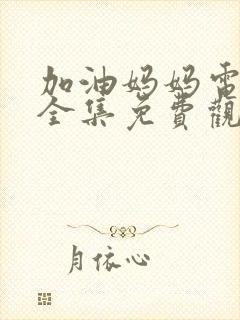 加油妈妈電
全集免費觀
月依心